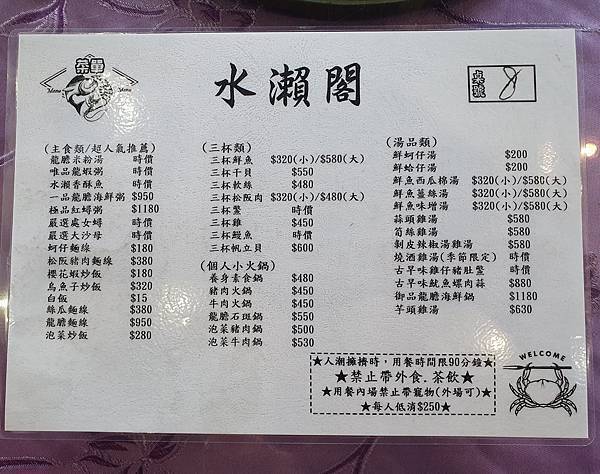 菜單
Menu Menu
水瀨閣
桌號
8
(主食類/超人氣推薦)
龍膽米粉湯 時價
唯品龍蝦粥 時價
水瀨香酥魚 時價
一品龍膽海鮮粥 $950
極品紅蟳粥 $1180
嚴選處女蟳 時價
嚴選大沙母 時價
蚵仔麵線 $180
松阪豬肉麵線 $380
櫻花蝦炒飯 $180
烏魚子炒飯 $320
白飯 $15
絲瓜麵線 $380
龍膽麵線 $950
泡菜炒飯 $280
(三杯類)
三杯鮮魚 $320(小)/$580(大)
三杯干貝 $550
三杯軟絲 $480
三杯松阪肉 $320(小)/$480(大)
三杯鱉 時價
三杯雞 $450
三杯鰻魚 時價
三杯帆立貝 $600
(個人小火鍋)
養身素食鍋 $480
豬肉火鍋 $450
牛肉火鍋 $450
龍膽石斑鍋 $550
泡菜豬肉鍋 $500
泡菜牛肉鍋 $530
(湯品類)
鮮蚵仔湯 $200
鮮蛤仔湯 $200
鮮魚西瓜綿湯 $320(小)/$580(大)
鮮魚薑絲湯 $320(小)/$580(大)
鮮魚味增湯 $320(小)/$580(大)
蒜頭雞湯 $580
筍絲雞湯 $580
剝皮辣椒湯雞湯 $580
燒酒雞湯(季節限定) 時價
古早味雞仔豬肚鱉 時價
古早味魷魚螺肉蒜 $880
御品龍膽海鮮鍋 $1180
芋頭雞湯 $630
★人潮擁擠時，用餐時間限90分鐘★
★禁止帶外食.茶飲★
★用餐內場禁止帶寵物(外場可)★
★每人低消$250★
WELCOME